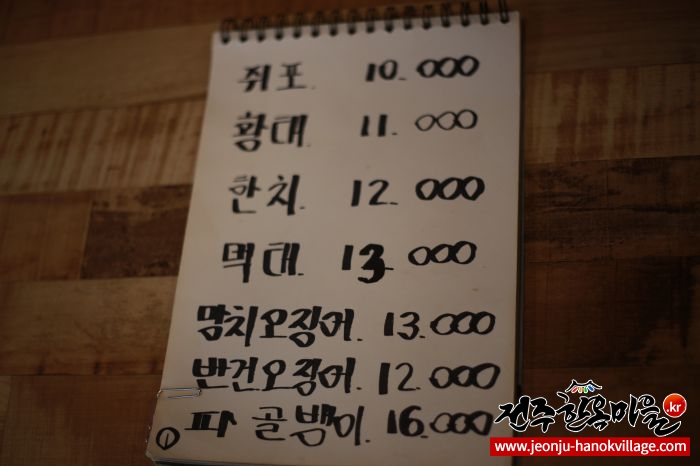 쥐포. 10.000
황태. 11.000
한치. 12.000
먹태. 13.000
망치오징어. 13.000
반건오징어. 12.000
파 골뱅이. 16.000
전주한옥마을.kr
www.jeonju-hanokvillage.com